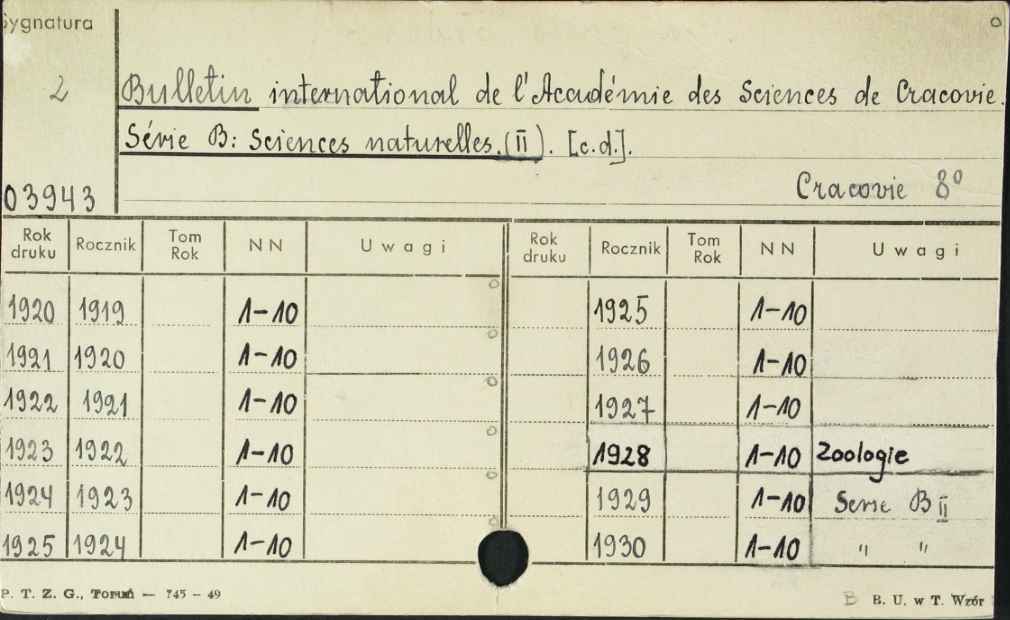 Sygnatura
2
Bulletin international de l'Académie des Sciences de Cracovie.
Série B: Sciences naturelles.(II). [c.d.].
03943
Cracovie 8º
Rok druku Rocznik Tom Rok N N Uwagi Rok druku Rocznik Tom Rok N N Uwagi
1920 1919 1-10 1925 1-10
1921 1920 1-10 1926 1-10
1922 1921 1-10 1927 1-10
1923 1922 1-10 1928 1-10 Zoologie
1924 1923 1-10 1929 1-10 Serie B II
1925 1924 1-10 1930 1-10 " "
P. T. Z. G., Toruń — 745 - 49
B B. U. w T. Wzór